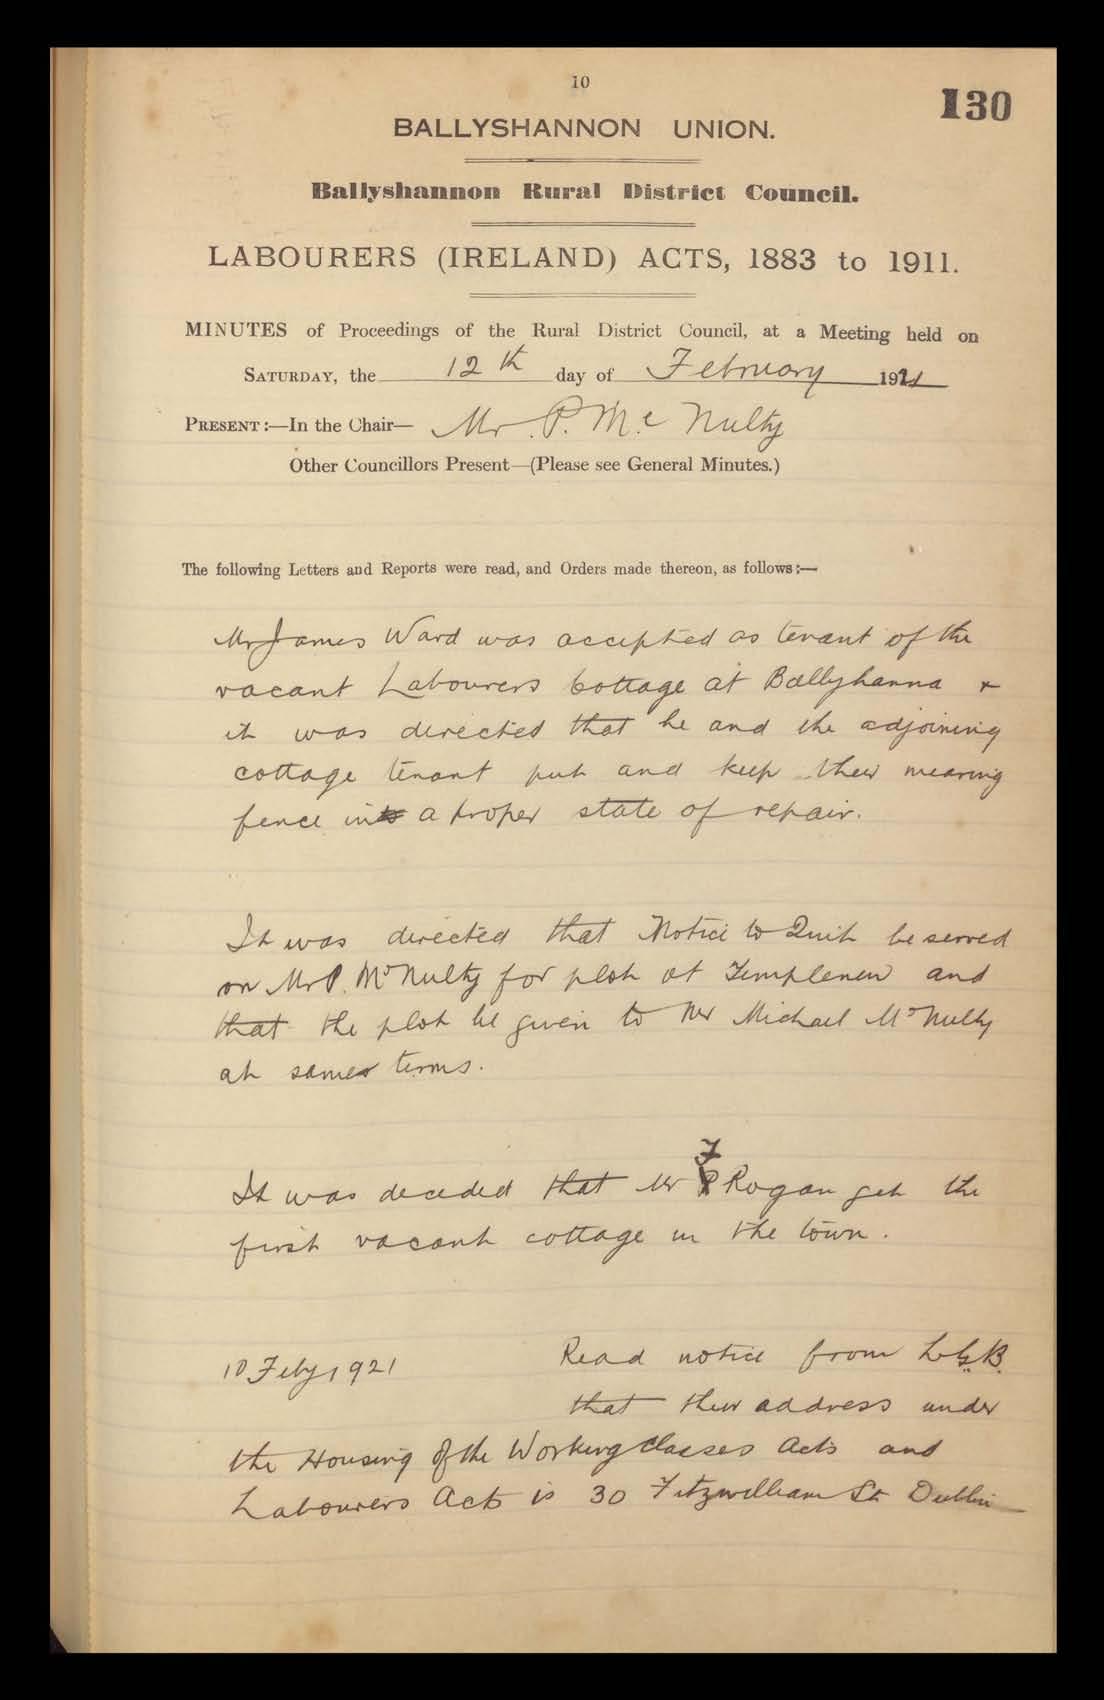 10
130
BALLYSHANNON UNION.
Ballyshannon Rural District Council.
LABOURERS (IRELAND) ACTS, 1883 to 1911.
MINUTES of Proceedings of the Rural District Council, at a Meeting held on
SATURDAY, the 12th day of February 1921
PRESENT:—In the Chair— Mr. P. Mc Nulty
Other Councillors Present—(Please see General Minutes.)
The following Letters and Reports were read, and Orders made thereon, as follows:—
Mr James Ward was accepted as tenant of the
vacant Labourers Cottage at Ballyhanna &
it was directed that he and the adjoining
cottage tenant put and keep their mearing
fence in a proper state of repair.
It was directed that Notice to Quit be served
on Mr P. McNulty for plot at Templenew and
that the plot be given to Mr Michael McNulty
at same terms.
It was decided that Mr F Rogan get the
first vacant cottage in the town.
10 Feby 1921 Read notice from L.G.B.
that their address under
the Housing of the Working Classes Acts and
Labourers Acts is 30 Fitzwilliam St Dublin